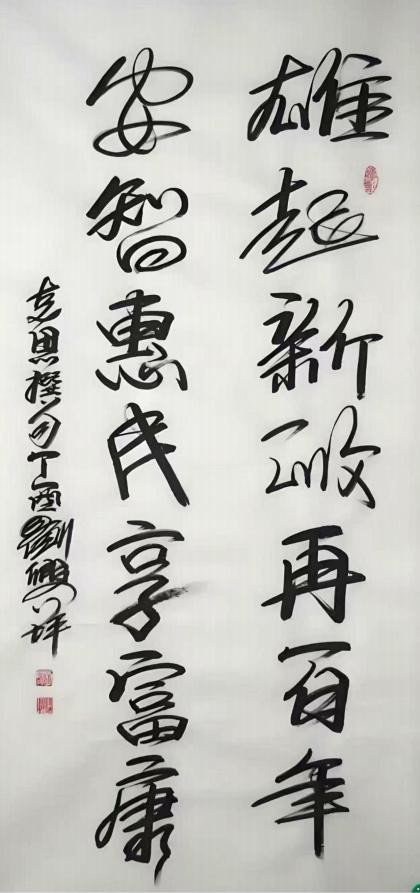 雄起新政再百年
安智惠民享富康
克恩撰句丁酉劉興坪